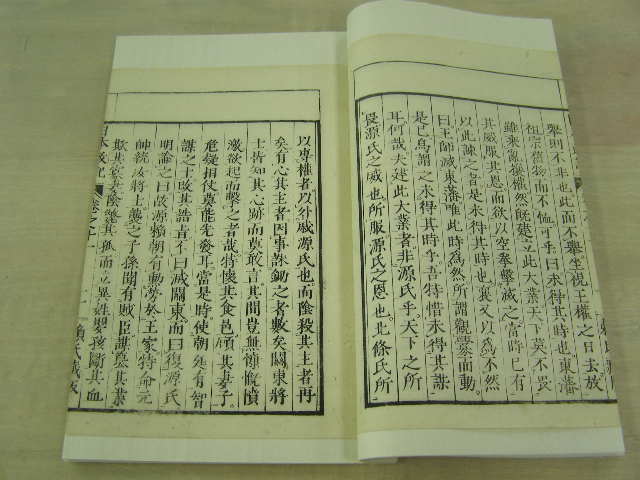 舉則不非也此而不舉坐視王權之日去故
祖宗舊物而不恤乎曰未得其時也東藩
雖衰亂擾攘然能建立此大業天下莫不畏
其威服其恩而欲以空拳擊滅之當時已有
以此諫之者是未得其時也襄又以為不然
曰王師滅東藩唯此時為然所謂觀釁而動
是已烏謂之未得其時乎吾特惜未得其謀
耳何哉夫建此大業者非源氏乎天下之所
畏源氏之威也所服源氏之恩也北條氏所
以專權者以外戚源氏也而陰殺其主者再
矣有心其主者因事誅鋤之者數矣關東將
士皆知其心跡而莫敢言其間豈無慷慨憤
激欲起而擊之者哉特懷其食邑顧其妻子
危疑相仗莫能先發耳當是時使朝廷有智
謀之士改其誥書不曰滅關東而曰復源氏
明諭之曰故源賴朝有勳勞於王家特命元
帥統汝將士襲之子孫聞有賊臣謀篡其業
欺其寡妻陰斃其孤而立異姓嬰孩斷其血
日本政記 卷之十 賴氏藏板